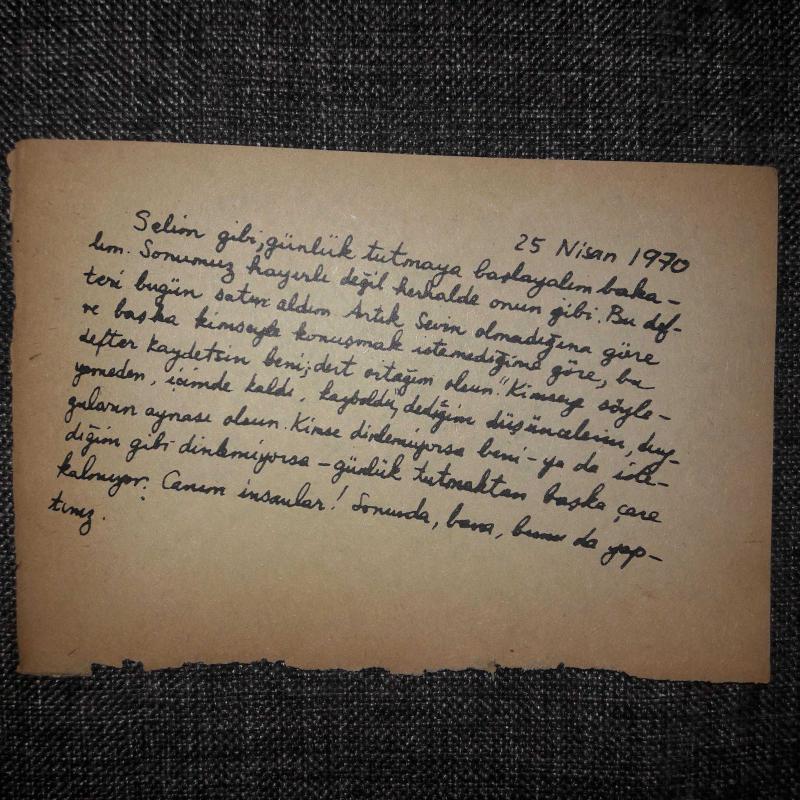 25 Nisan 1970
Selim gibi, günlük tutmaya başlayalım baka-
lım. Sonumuz hayırlı değil herhalde onun gibi. Bu def-
teri bugün satın aldım. Artık Sevin olmadığına göre
ve başka kimseyle konuşmak istemediğime göre, bu
defter kaydetsin beni; dert ortağım olsun. "Kimseye söyle-
yemeden, içimde kaldı, kayboldu," dediğim düşüncelerin, duy-
guların aynası olsun. Kimse dinlemiyorsa beni - ya da iste-
diğim gibi dinlemiyorsa - günlük tutmaktan başka çare
kalmıyor. Canım insanlar! Sonunda, bana, bunu da yap-
tınız.